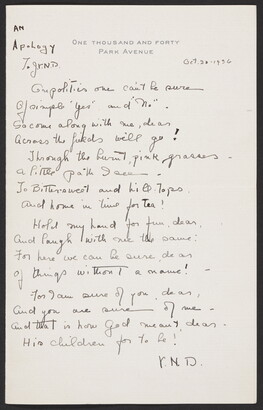 AN
Apology
To V.N.D.
ONE THOUSAND AND FORTY
PARK AVENUE
Oct. 20 - 1936
In politics one can't be sure
Of simple "Yes" and "No" -
So come along with me, dear
Across the fields we'll go!
Through the burnt, pink grasses -
A little path I see -
To Bittersweet and hill-tops
And home in time for tea!
Hold my hand for fun, dear,
And laugh with me the same:
For here we can be sure, dear
Of things without a name! -
For I am sure of you, dear,
And you are sure of me -
And that is how God meant, dear -
His children for to be!
V.N.D.